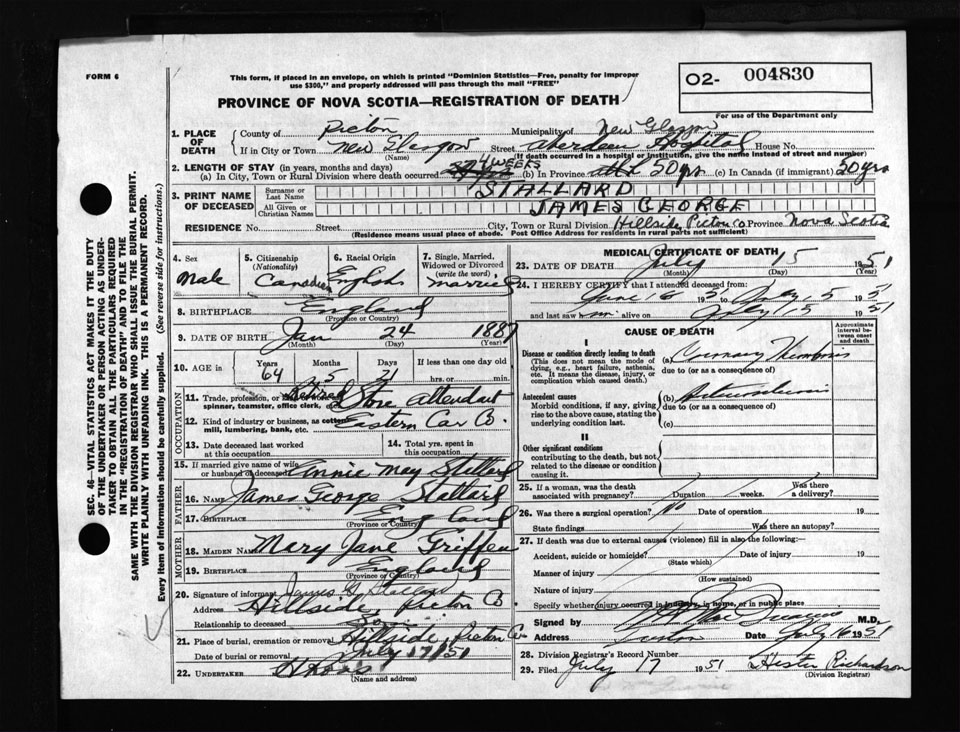 FORM 6
This form, if placed in an envelope, on which is printed "Dominion Statistics—Free, penalty for improper
use $300," and properly addressed will pass through the mail "FREE"
PROVINCE OF NOVA SCOTIA—REGISTRATION OF DEATH
O2- 004830
For use of the Department only
1. PLACE OF DEATH
County of Pictou Municipality of New Glasgow
If in City or Town New Glasgow Street Aberdeen Hospital House No.
(Name) (If death occurred in a hospital or institution, give the name instead of street and number)
2. LENGTH OF STAY (in years, months and days)
(a) In City, Town or Rural Division where death occurred 4 WEEKS (b) In Province 50 yrs (c) In Canada (if immigrant) 50 yrs
3. PRINT NAME OF DECEASED
Surname or Last Name STALLARD
All Given or Christian Names JAMES GEORGE
RESIDENCE No. Street City, Town or Rural Division Hillside Pictou Co Province Nova Scotia
(Residence means usual place of abode. Post Office Address for residents in rural parts not sufficient)
4. Sex Male
5. Citizenship (Nationality) Canadian
6. Racial Origin English
7. Single, Married, Widowed or Divorced (write the word) Married
8. BIRTHPLACE England
(Province or Country)
9. DATE OF BIRTH Jan 24 1887
(Month) (Day) (Year)
10. AGE in Years Months Days If less than one day old
64 5 21 hrs. or min.
OCCUPATION
11. Trade, profession, or Store attendant
spinner, teamster, office clerk, etc.
12. Kind of industry or business, as cotton Eastern Car Co.
mill, lumbering, bank, etc.
13. Date deceased last worked at this occupation
14. Total yrs. spent in this occupation
15. If married give name of wife or husband of deceased Annie May Stallard
FATHER
16. NAME James George Stallard
17. BIRTHPLACE England
(Province or Country)
MOTHER
18. MAIDEN NAME Mary Jane Griffen
19. BIRTHPLACE England
(Province or Country)
20. Signature of informant James G Stallard
Address Hillside, Pictou Co
Relationship to deceased Son
21. Place of burial, cremation or removal Hillside, Pictou Co.
Date of burial or removal July 17/51
22. UNDERTAKER
(Name and address)
MEDICAL CERTIFICATE OF DEATH
23. DATE OF DEATH July 15 1951
(Month) (Day) (Year)
24. I HEREBY CERTIFY that I attended deceased from:
June 16 1951 to July 15 1951
and last saw him alive on July 15 1951
CAUSE OF DEATH
Approximate interval between onset and death
I
Disease or condition directly leading to death
(This does not mean the mode of dying, e.g., heart failure, asthenia, etc. It means the disease, injury, or complication which caused death.)
(a) Coronary Thrombosis
due to (or as a consequence of)
Antecedent causes
Morbid conditions, if any, giving rise to the above cause, stating the underlying condition last.
(b)
due to (or as a consequence of)
(c)
II
Other significant conditions
contributing to the death, but not related to the disease or condition causing it.
25. If a woman, was the death associated with pregnancy? Duration weeks. Was there a delivery?
26. Was there a surgical operation? No Date of operation 19
State findings Was there an autopsy?
27. If death was due to external causes (violence) fill in also the following:—
Accident, suicide or homicide? Date of injury 19
(State which)
Manner of injury
(How sustained)
Nature of injury
Specify whether injury occurred in industry, in home, or in public place
Signed M.D.
Address Date July 16 1951
28. Division Registrar's Record Number
29. Filed July 17 1951 Hester Richardson
(Division Registrar)
SEC. 46—VITAL STATISTICS ACT MAKES IT THE DUTY
OF THE UNDERTAKER OR PERSON ACTING AS UNDER-
TAKER "TO OBTAIN ALL THE PARTICULARS REQUIRED
IN THE "REGISTRATION OF DEATH" AND TO FILE THE
SAME WITH THE DIVISION REGISTRAR WHO SHALL ISSUE THE BURIAL PERMIT.
WRITE PLAINLY WITH UNFADING INK. THIS IS A PERMANENT RECORD.
Every item of information should be carefully supplied. (See reverse side for instructions.)